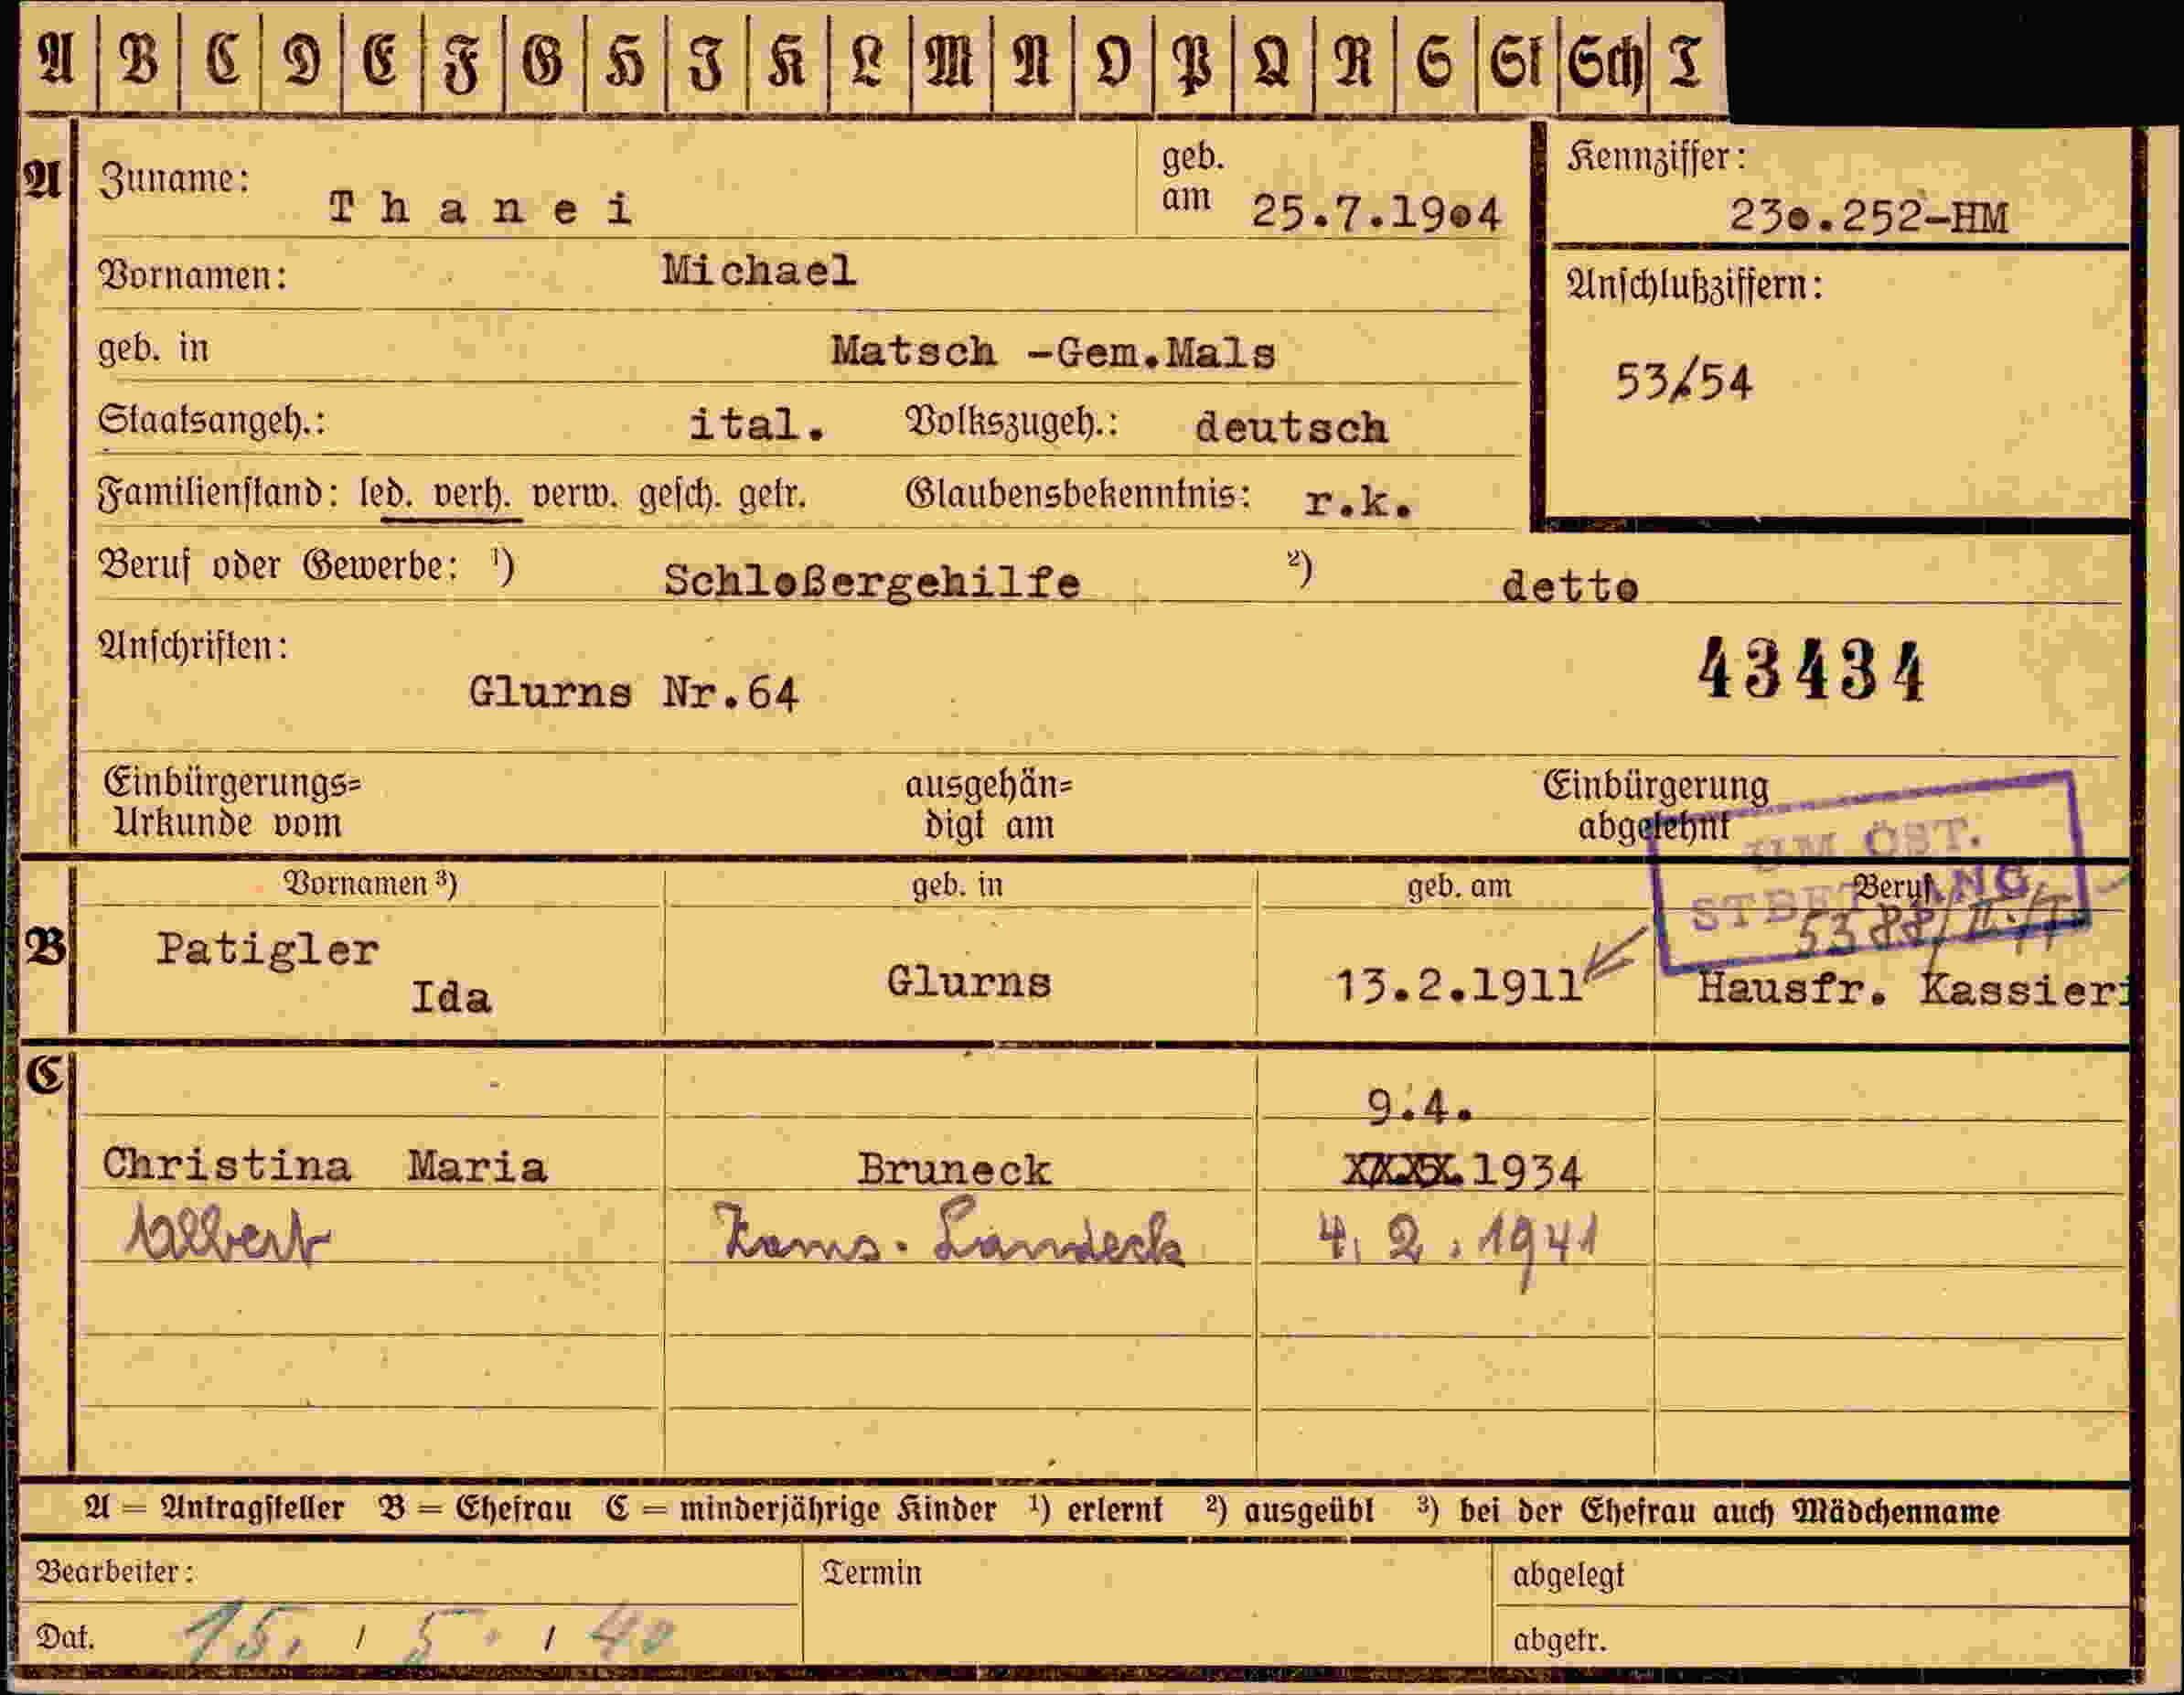 A B C D E F G H J K L M N O P Q R S St Sch T
A Zuname: Thanei geb. am 25.7.1904 Kennziffer: 230.252-HM
Vornamen: Michael Anschlußziffern:
geb. in Matsch -Gem.Mals 53/54
Staatsangeh.: ital. Volkszugeh.: deutsch
Familienstand: led. verh. verw. gesch. getr. Glaubensbekenntnis: r.k.
Beruf oder Gewerbe: 1) Schloßergehilfe 2) detto
Anschriften: 43434
Glurns Nr.64
Einbürgerungs= ausgehän= Einbürgerung
Urkunde vom digt am abgelehnt
UM ÖST.
Vornamen 3) geb. in geb. am Beruf
5388/II./T
B Patigler
Ida Glurns 13.2.1911 Hausfr. Kassieri
C
9.4.
Christina Maria Bruneck 1934
Albert Zams. Landeck 4. 2. 1941
A = Antragsteller B = Ehefrau C = minderjährige Kinder 1) erlernt 2) ausgeübt 3) bei der Ehefrau auch Mädchenname
Bearbeiter: Termin abgelegt
Dat. 15. / 5. / 40 abgetr.